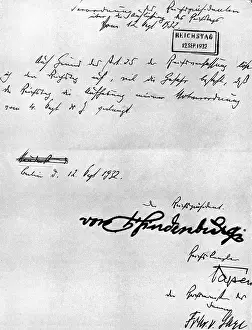 Verordnung des Reichspräsidenten
über die Auflösung des Reichstags
Vom 12. Sept 1932.
REICHSTAG
12.SEP.1932
Auf Grund des Art. 25 der Reichsverfassung löse
ich den Reichstag auf, weil die Gefahr besteht, daß
der Reichstag die Aufhebung meiner Notverordnung
vom 4. Sept d. J. verlangt.
Berlin d. 12. Sept 1932.
Der Reichspräsident
von Hindenburg
Reichskanzler
Papen
der Reichsminister des
Innern
Frhr. v. Gayl